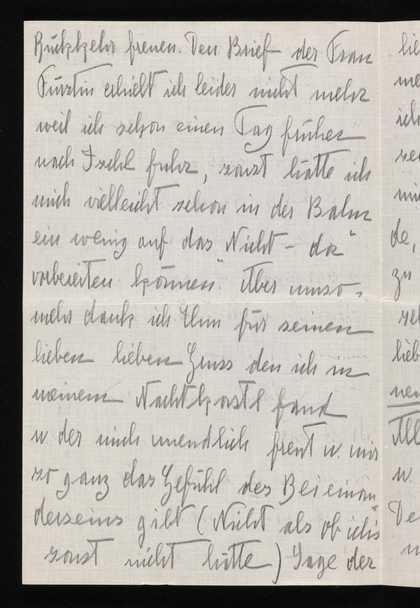 Rückkehr freuen. Den Brief der Frau
Fürstin erhielt ich leider nicht mehr
weil ich schon einen Tag früher
nach Ischl fuhr, sonst hätte ich
mich vielleicht schon in der Bahn
ein wenig auf das „Nicht - da"
vorbereiten können." Aber umso-
mehr dank ich Ihm für seinen
lieben lieben Gruss den ich in
meinem Nachtkastl fand
u der mich unendlich freut u. mir
so ganz das Gefühl des Beieinan-
derseins gibt (Nicht als ob ichs
sonst nicht hätte) Sage der